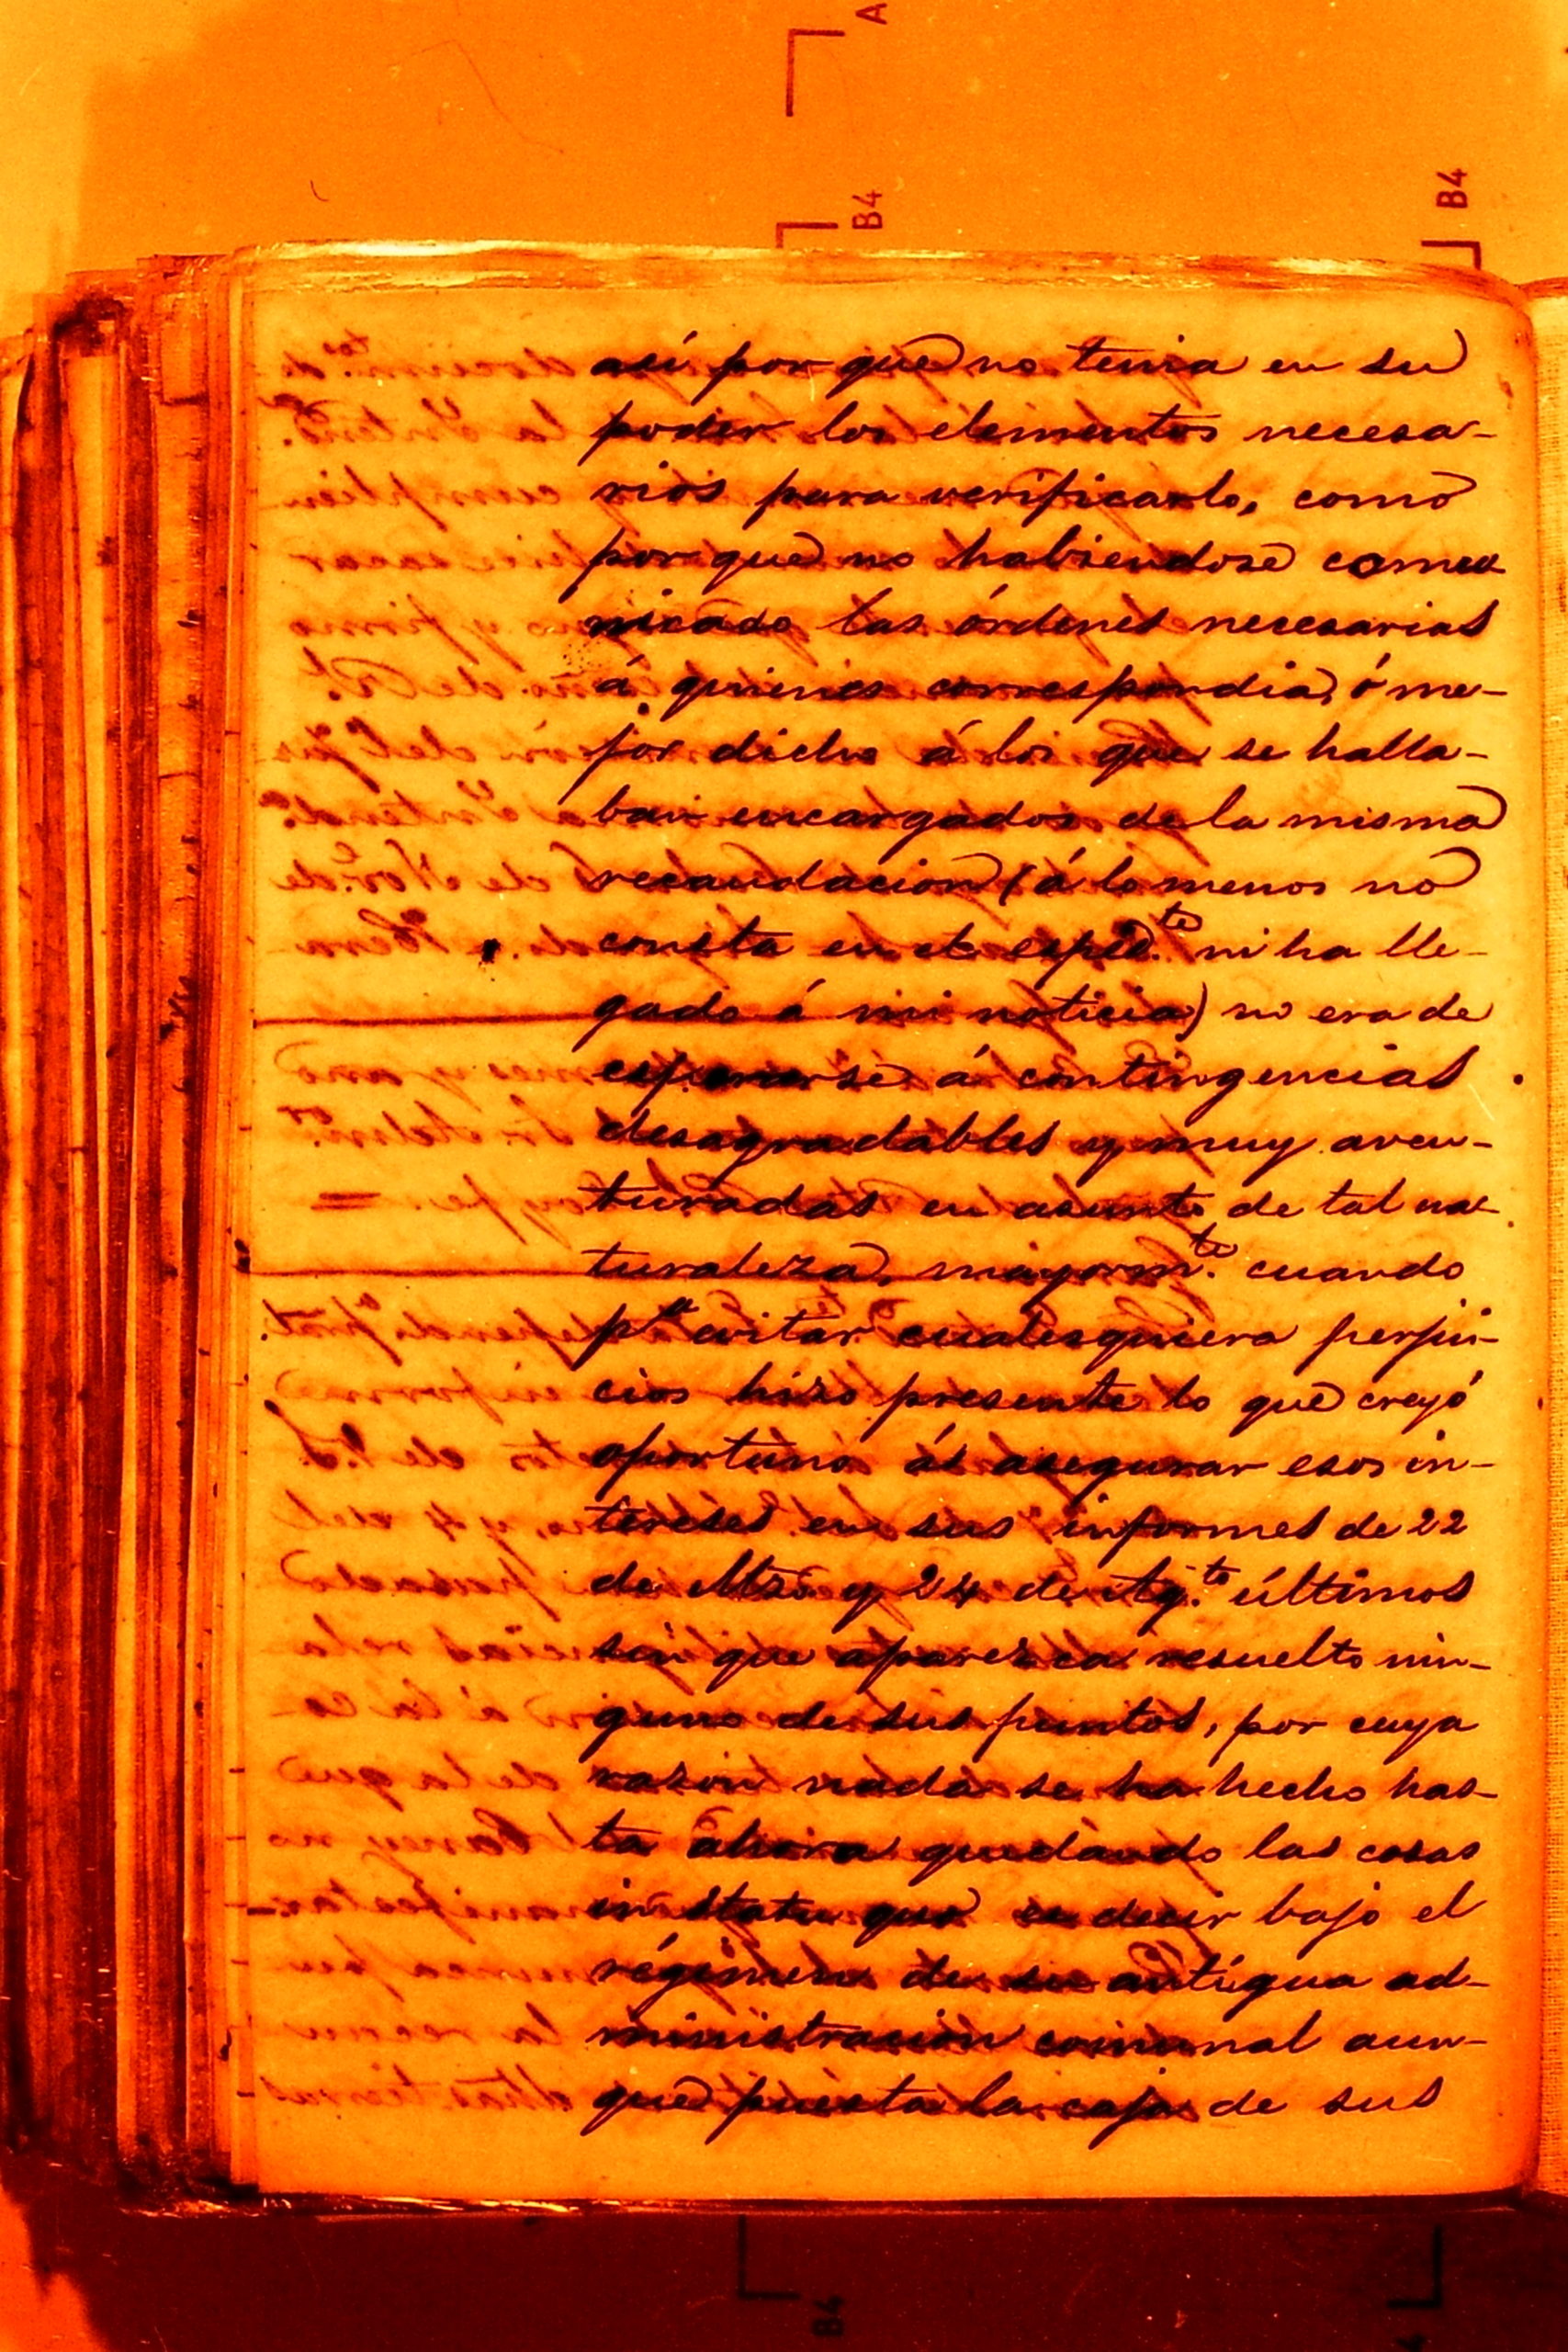 A
B4
B4
así por que no tenia en su
poder los elementos necesa-
rios para verificarlo, como
por que no habiendose comu
nicado las órdenes necesarias
á quienes correspondia, ó me-
jor dicho á los que se halla-
ban encargados de la misma
recaudacion (á lo menos no
consta en el esped.te ni ha lle-
gado á mi noticia) no era de
esperarse á contingencias
desagradables y muy aven-
turadas en asunto de tal na-
turaleza, mayorm.te cuando
pa evitar cualesquiera perjui-
cios hizo presente lo que creyó
oportuno á asegurar esos in-
tereses en sus informes de 22
de Mzo y 24 de Ag.to últimos
sin que aparezca resuelto nin-
guno de sus puntos, por cuya
razon nada se ha hecho has-
ta ahora quedando las cosas
in statu quo es decir bajo el
régimen de su antígua ad-
ministracion comunal aun-
que puesta la caja de sus
B4